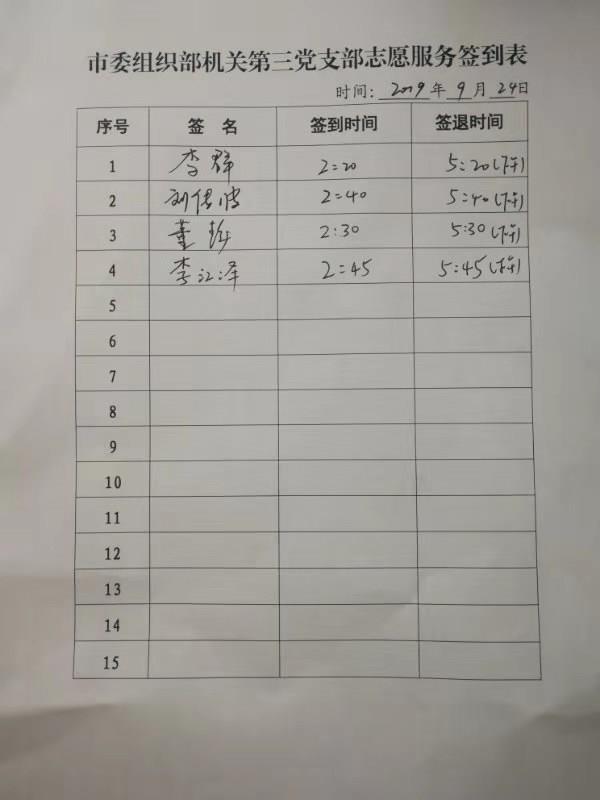 市委组织部机关第三党支部志愿服务签到表
时间: 2019 年 9 月 24日
序号 签 名 签到时间 签退时间
1 李群 2:20 5:20(下午)
2 刘信波 2:40 5:40(下午)
3 董 2:30 5:30(下午)
4 李江泽 2:45 5:45(下午)
5
6
7
8
9
10
11
12
13
14
15